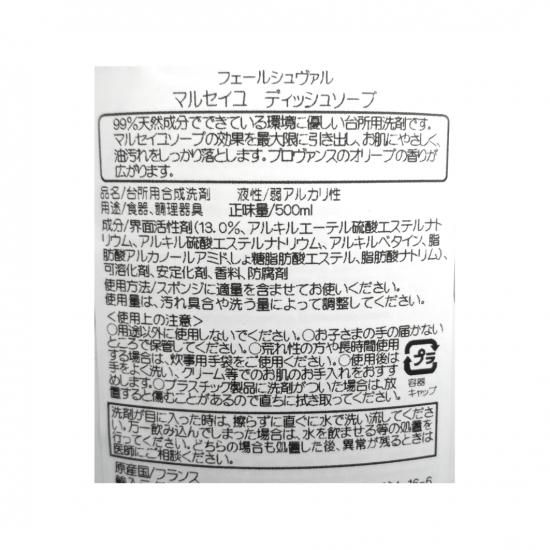 フェールシュヴァル
マルセイユ ディッシュソープ
99%天然成分でできている環境に優しい台所用洗剤です。
マルセイユソープの効果を最大限に引き出し、お肌にやさしく、
油汚れをしっかり落とします。プロヴァンスのオリーブの香りが
広がります。
品名/台所用合成洗剤 液性/弱アルカリ性
用途/食器、調理器具 正味量/500ml
成分/界面活性剤(13.0%、アルキルエーテル硫酸エステルナト
リウム、アルキル硫酸エステルナトリウム、アルキルベタイン、脂
肪酸アルカノールアミド、しょ糖脂肪酸エステル、脂肪酸ナトリム)、
可溶化剤、安定化剤、香料、防腐剤
使用方法/スポンジに適量を含ませてお使いください。
使用量は、汚れ具合や洗う量によって調整してください。
<使用上の注意>
○用途以外に使用しないでください。○お子さまの手の届かない
ところで保管してください。○荒れ性の方や長時間使用
する場合は、炊事用手袋をご使用ください。○使用後は
手をよく洗い、クリーム等でのお肌のお手入れをおすす
めします。○プラスチック製品に洗剤がついた場合は、放
置すると傷むことがあるので直ちに拭き取ってください。
プラ
容器
キャップ
洗剤が目に入った時は、擦らずに直ぐに水で洗い流してくださ
い。万一飲み込んでしまった場合は、水を飲ませる等の処置を
行ってください。どちらの場合も処置した後、異常が残るときは
医師にご相談ください。
原産国/フランス
16-6